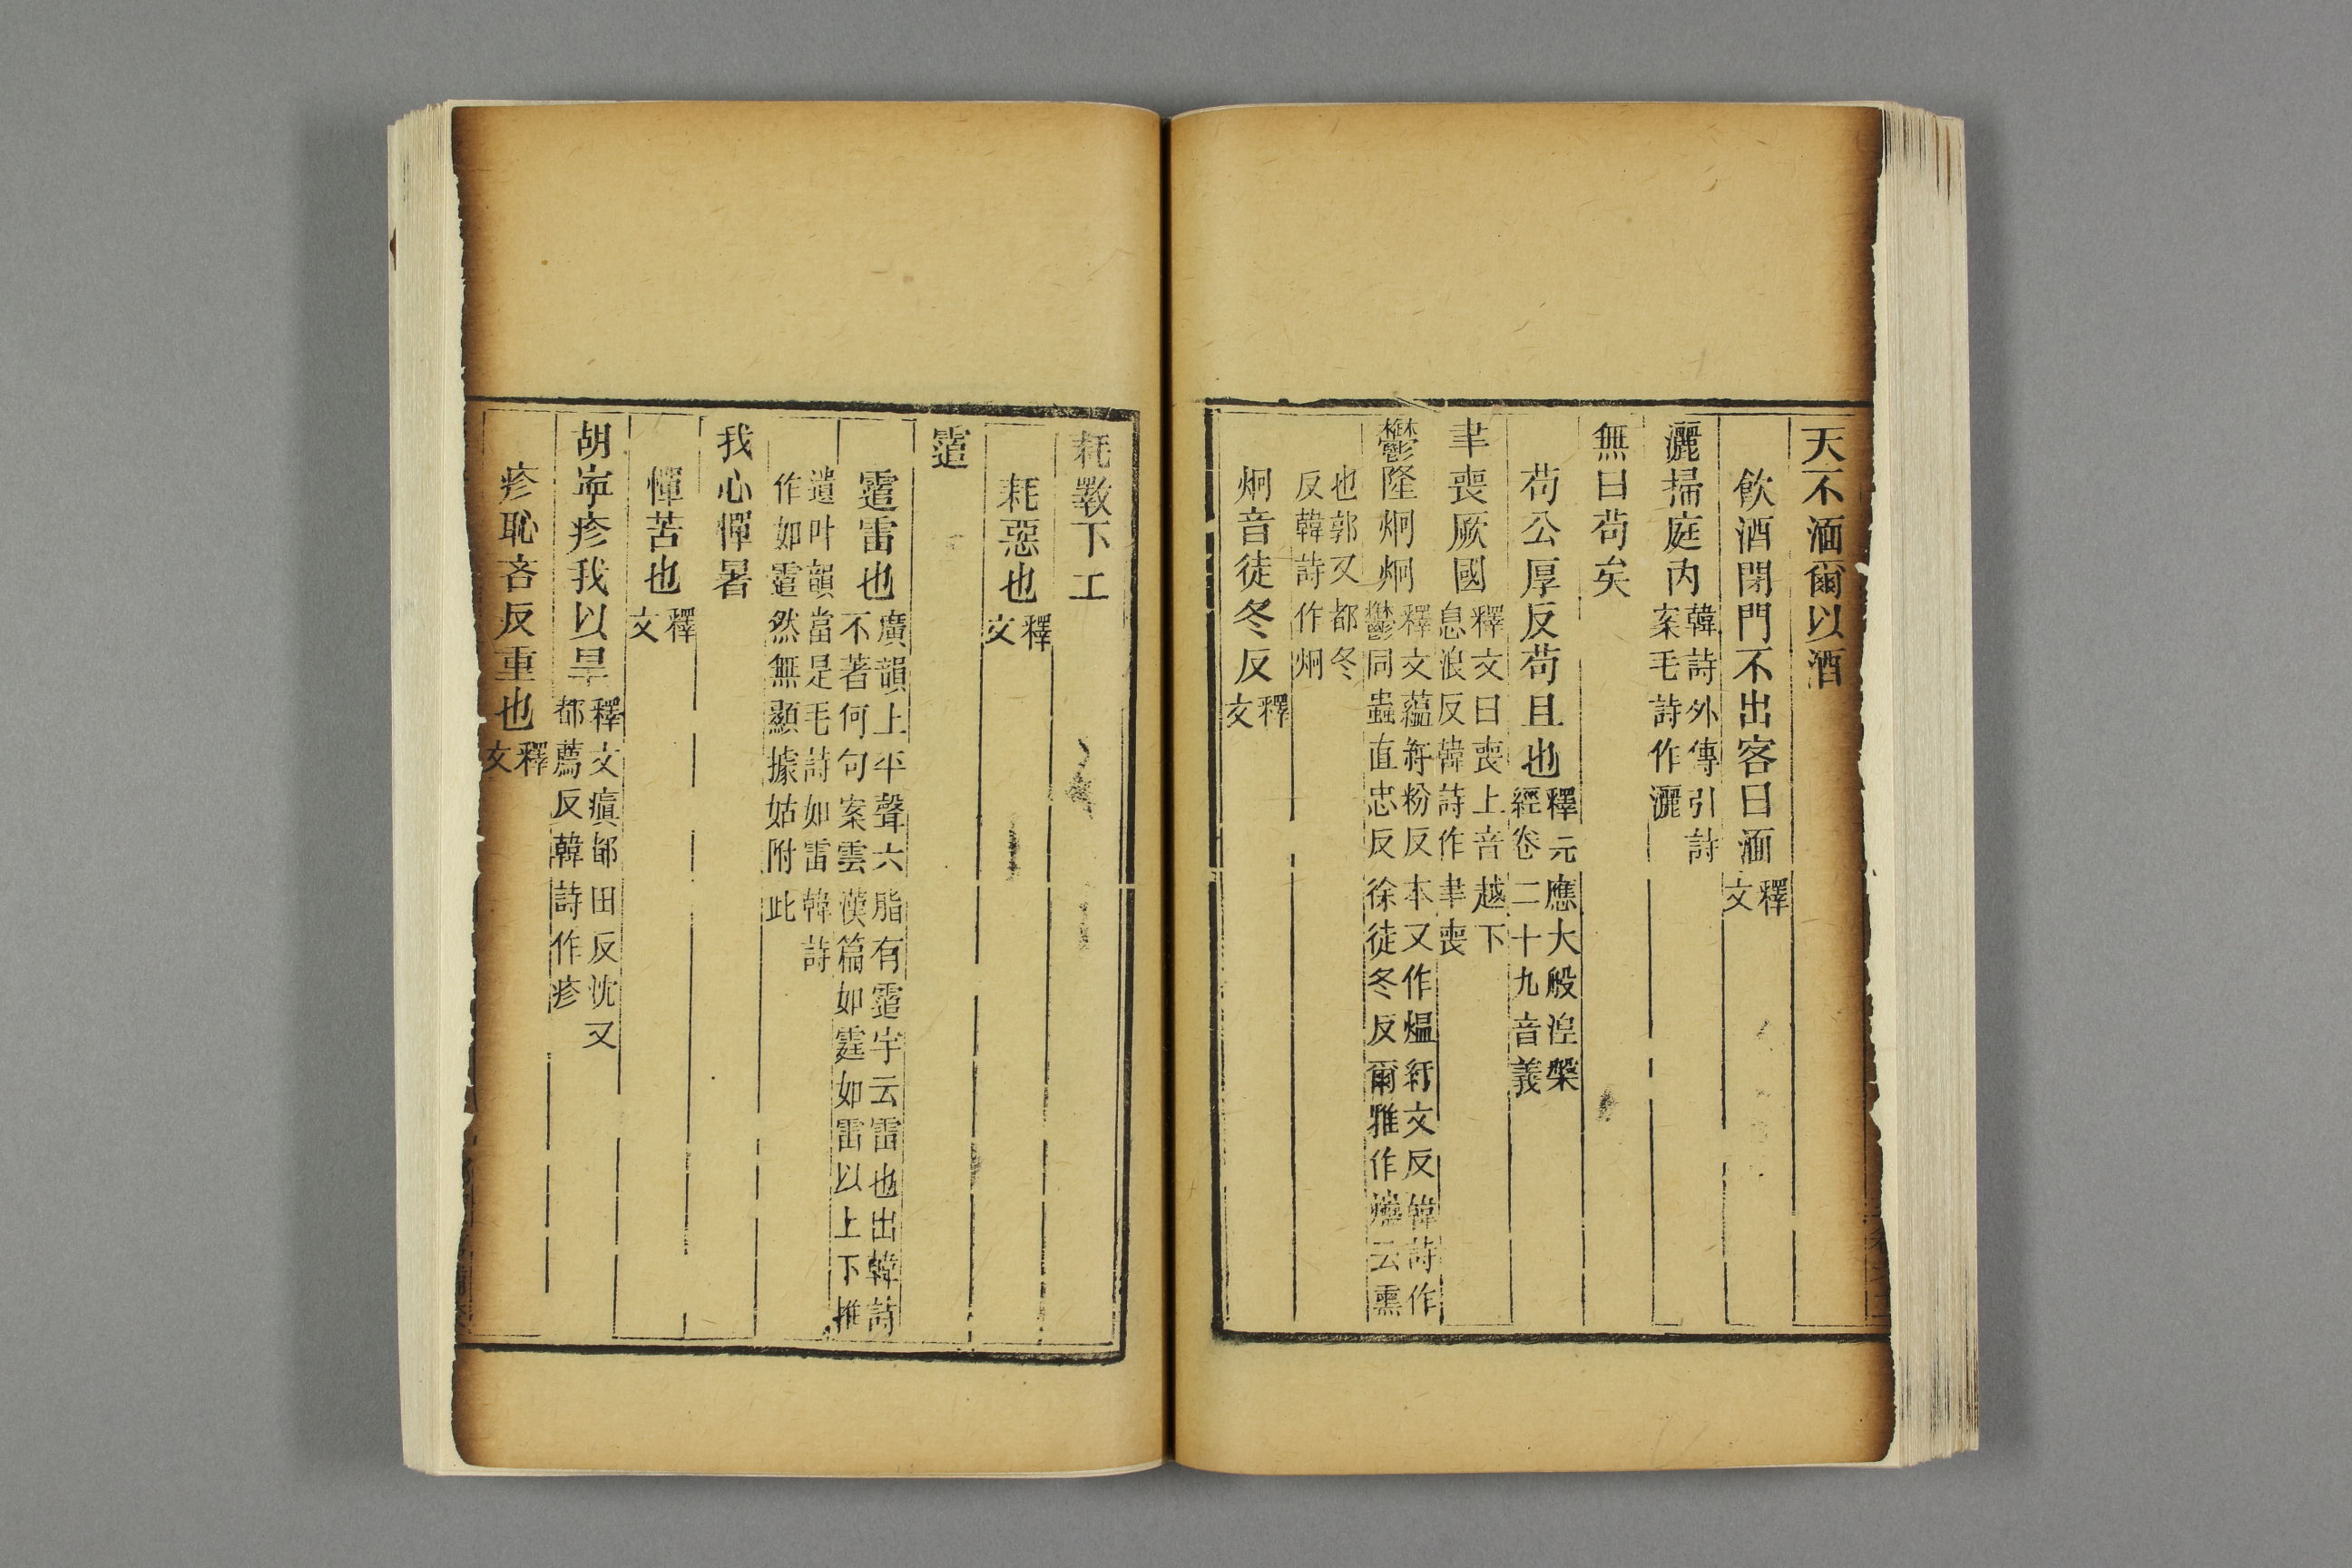 天不湎爾以酒
飲酒閉門不出客曰湎釋文
灑掃庭內韓詩外傳引詩案毛詩作灑
無曰苟矣
苟公厚反苟且也釋元應大般涅槃經卷二十九音義
聿喪厥國釋文曰喪上音越下息浪反韓詩作聿喪
鬱隆炯炯釋文蘊紆粉反本又作煴紆文反韓詩作鬱同蟲直忠反徐徒冬反爾雅作爞云熏
也郭又都冬反韓詩作炯
炯音徒冬反釋文
耗斁下土
耗惡也釋文
䨓
䨓雷也廣韻上平聲六脂有䨓字云雷也出韓詩不著何句案雲漢篇如霆如雷以上下推
遺叶韻當是毛詩如雷韓詩作如䨓然無顯據姑附此
我心憚暑
憚苦也釋文
胡寍疹我以旱釋文瘨都田反沈又都薦反韓詩作疹
疹恥吝反重也釋文